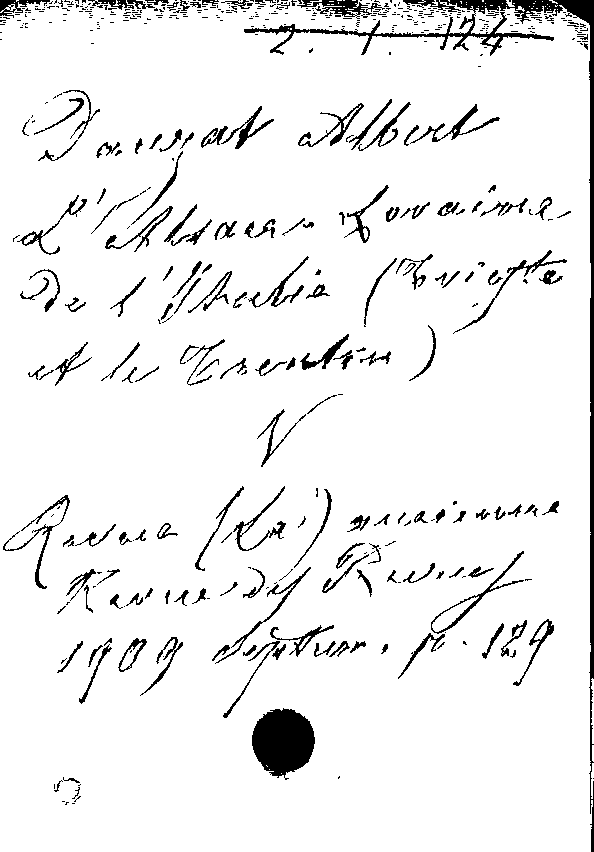 2. 1. 124
Dauzat Albert
L'Alsace-Lorraine
de l'Italie (Trieste
et le Trentin)
V
Revue (La) ancienne
Revue des Revues
1909 septem. p. 129